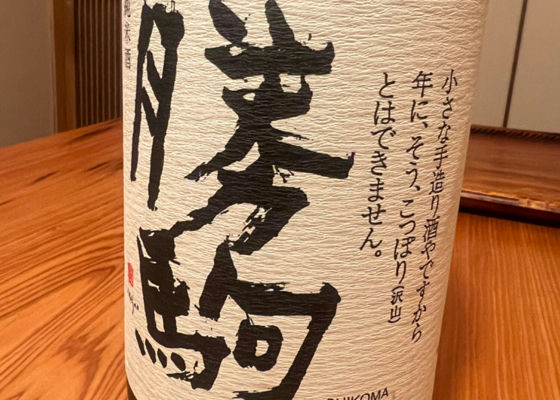 純米酒
勝駒
小さな手造り酒やですから
年に、そう、こっぽり(沢山)
とはできません。
HIKOMA